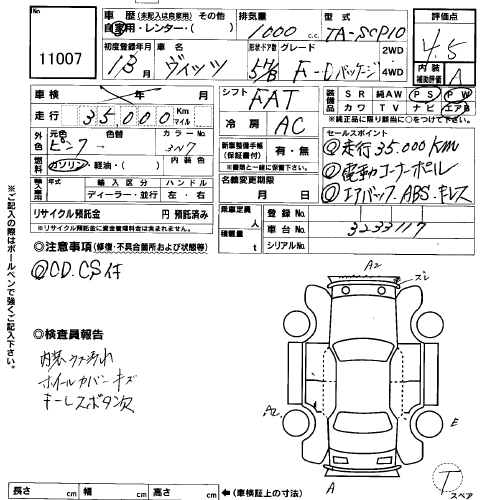 No.
11007
車歴 (未記入は自家用) その他
自家用・レンター・( )
排気量
1000 c.c.
型式
TA-SCP10
評価点
4.5
初度登録年月
13年 月
車名
ヴィッツ
形状・ドア数
5 H/B
グレード
F-Dパッケージ
2WD
4WD
内装
補助評価
A
車検 年 月
シフト
FAT
装備品
SR 純AW PS PW
カワ TV ナビ エアB
※純正品に限り該当に○をつけて下さい。
走行 35,000 Km マイル
冷房 AC
セールスポイント
◎走行35,000KM
◎電動コーナーポール
◎エアバッグ、ABS、キーレス
外色
元色 色替 カラーNo.
ピンク - 3N7
新車整備手帳
(保証書付)
有・無
※車歴と一緒に保管して下さい。
燃料 ガソリン・軽油・( ) 内装色
名義変更期限
月 日
輸入車用
年式 輸入区分 ハンドル
ディーラー・並行 左・右
リサイクル預託金 円 預託済み
※リサイクル預託金に資金管理料金は含まれません。
乗車定員 人
積載量 t
登録No.
車台No. 3233117
シリアルNo.
◎注意事項(修復・不具合箇所および状態等)
◎CD.CS付
◎検査員報告
内装ウス汚れ
ホイールカバーキズ
キーレスボタン欠
※ご記入の際はボールペンで強くご記入下さい。
A2
ズレ
A2
E
A
T
スペア
長さ cm 幅 cm 高さ cm ←(車検証上の寸法)